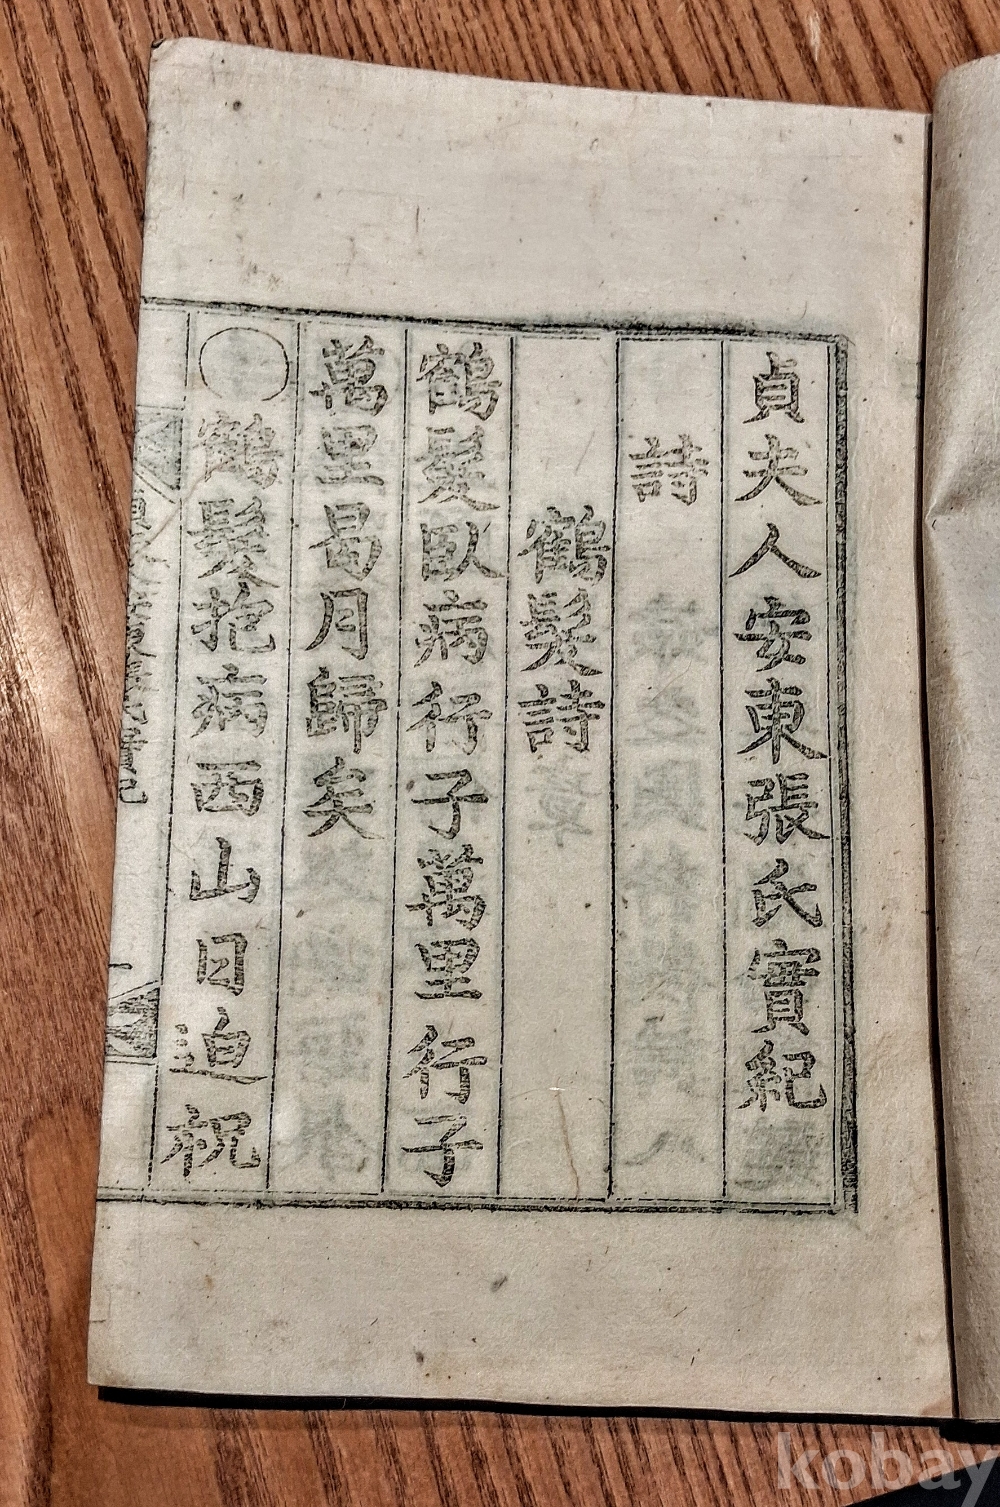 貞夫人安東張氏實紀
詩
鶴髮詩
鶴髮臥病行子萬里行子
萬里曷月歸矣
○鶴髮抱病西山日迫祝
kobay